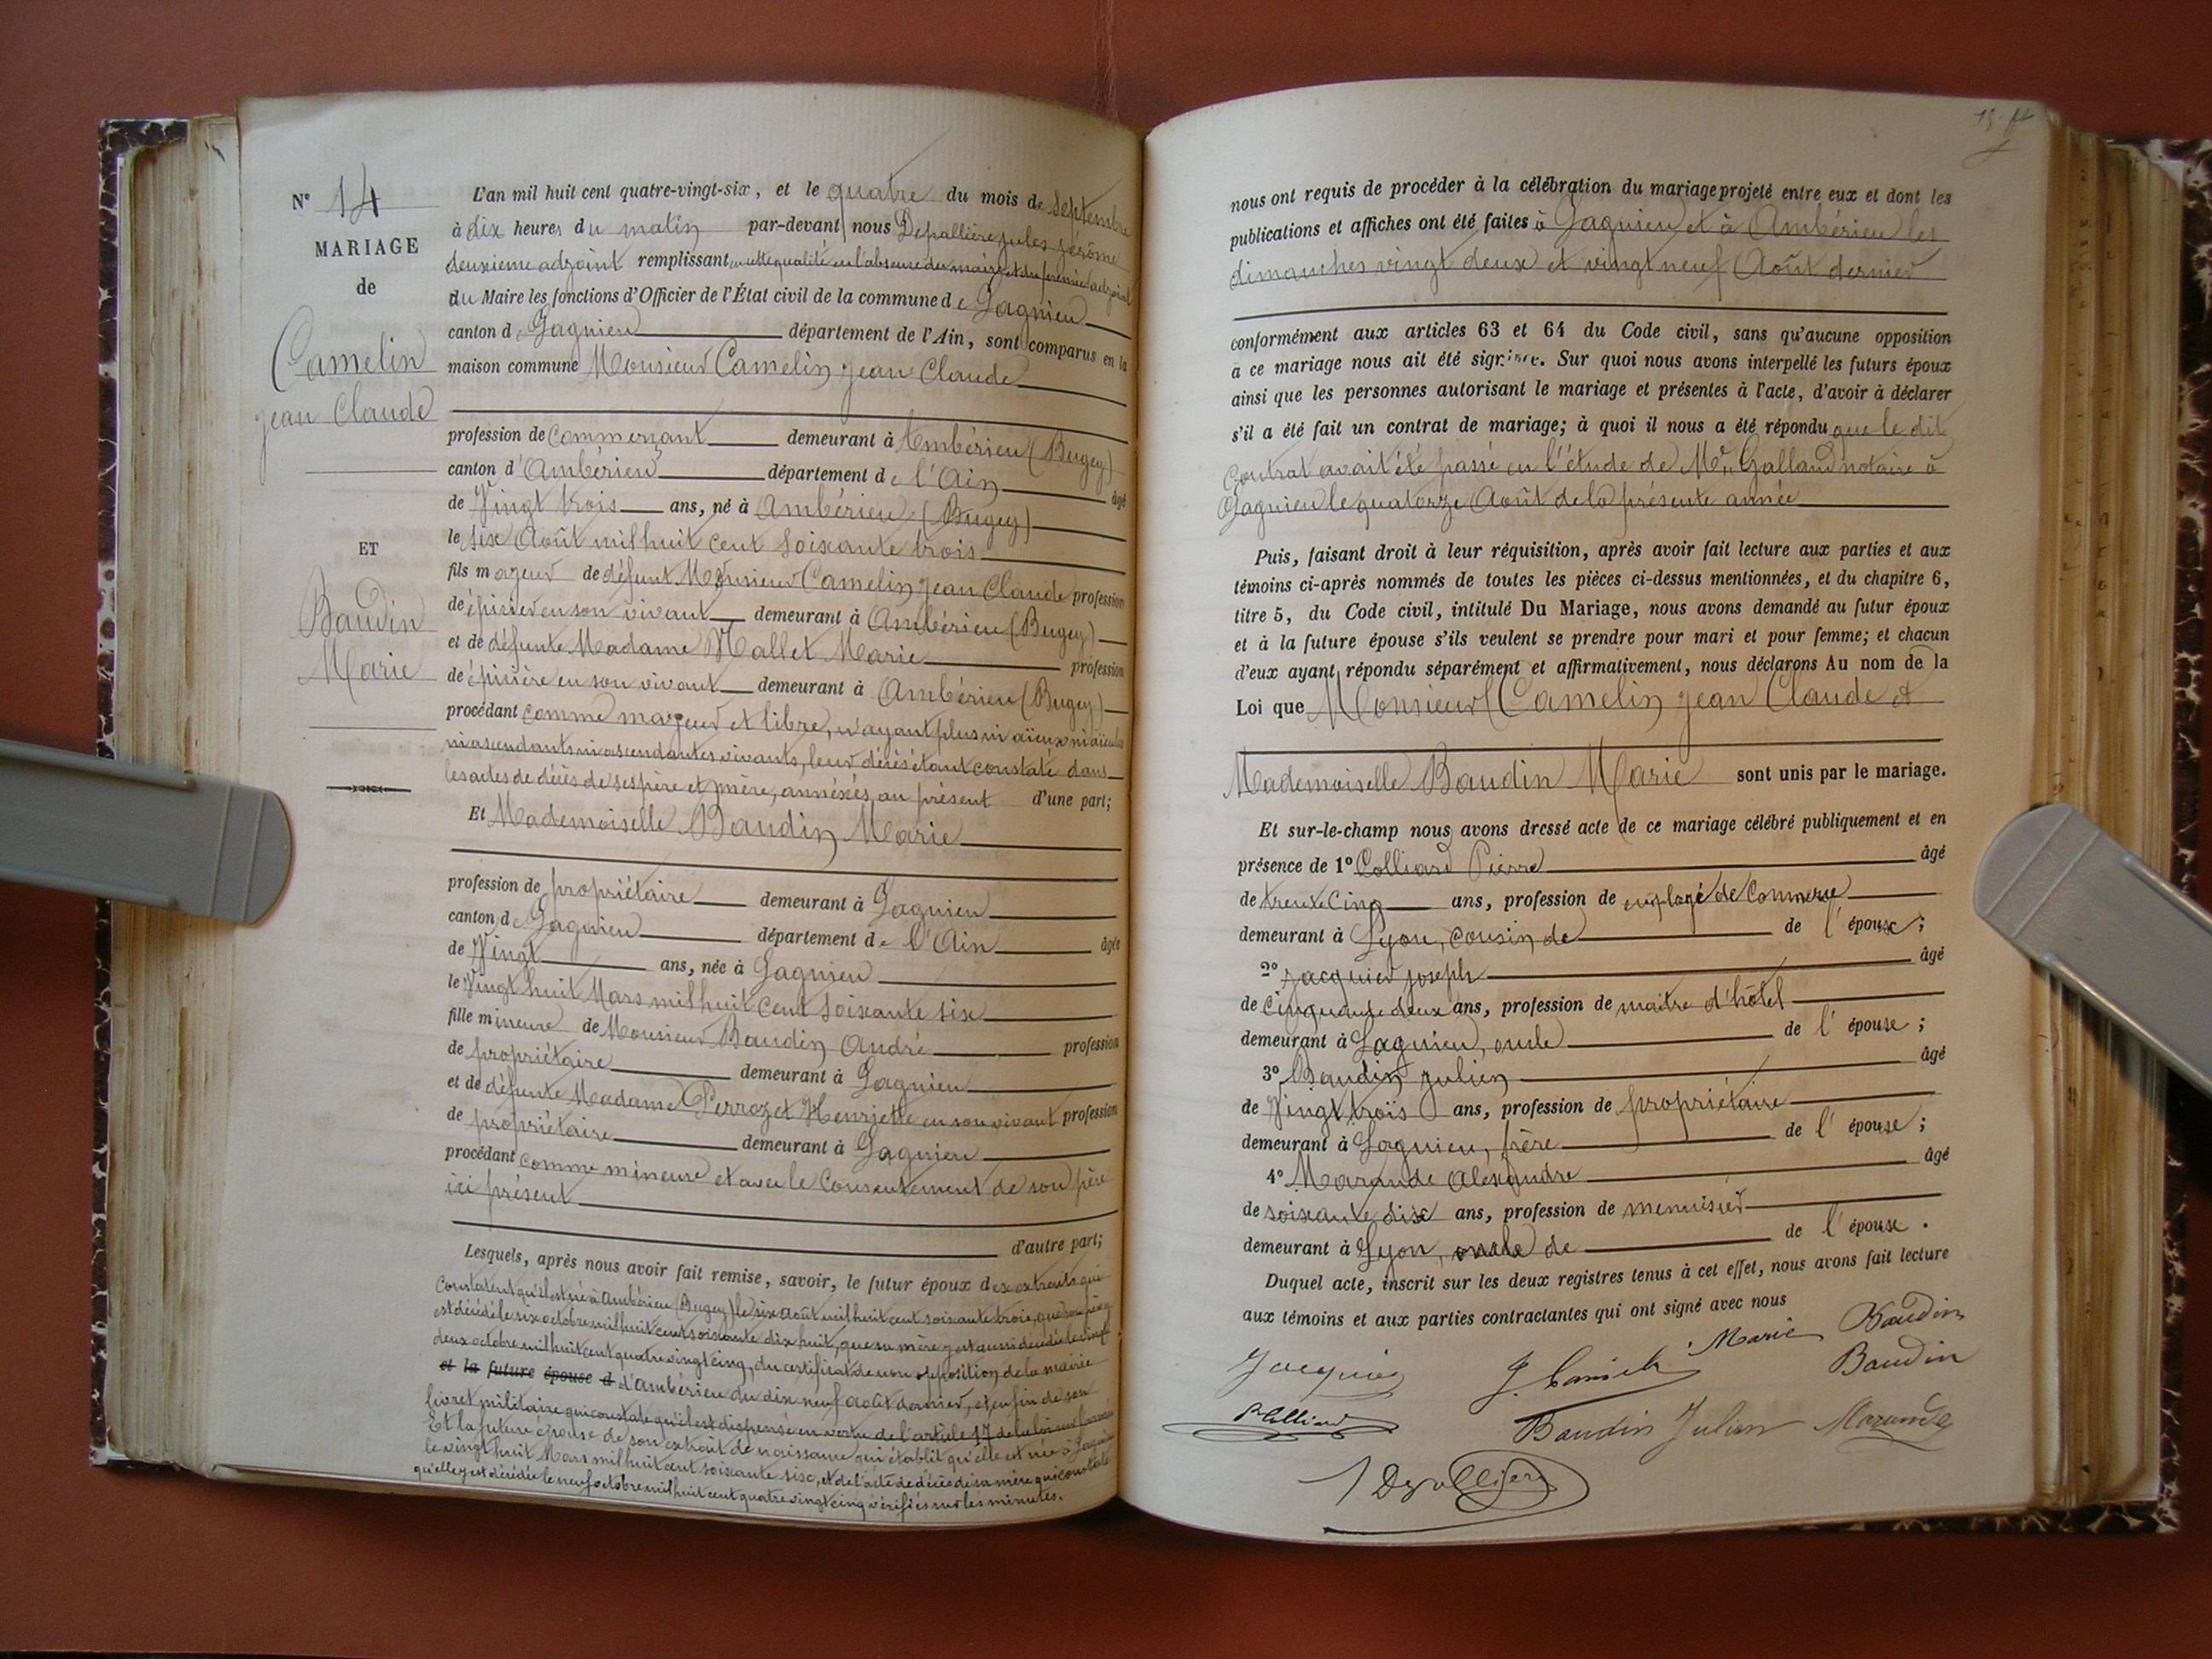 N° 14
MARIAGE
de
Camelin
jean Claude
ET
Baudin
Marie
L'an mil huit cent quatre-vingt-six, et le quatre du mois de Septembre
à dix heures du matin par-devant nous Depallière jules jérôme
deuxieme adjoint remplissant en cette qualité en l'absence du maire et du premier adjoint
du Maire les fonctions d'Officier de l'État civil de la commune de Lagnieu
canton de Lagnieu département de l'Ain, sont comparus en la
maison commune Monsieur Camelin jean Claude
profession de commerçant demeurant à Ambérieu (Bugey)
canton d'Ambérieu département de l'Ain âgé
de Vingt trois ans, né à Ambérieu (Bugey)
le six Août mil huit cent soixante trois
fils majeur de défunt Monsieur Camelin jean Claude profession
de épicier en son vivant demeurant à Ambérieu (Bugey)
et de défunte Madame Mallet Marie profession
de épicière en son vivant demeurant à Ambérieu (Bugey)
procédant comme majeur et libre, n'ayant plus ni aïeux ni aïeules
ni ascendants ni ascendantes vivants, leur décès étant constaté dans
les actes de décès de ses père et mère, annéxés au présent d'une part;
Et Mademoiselle Baudin Marie
profession de propriétaire demeurant à Lagnieu
canton de Lagnieu département de l'Ain âgée
de Vingt ans, née à Lagnieu
le Vingt huit Mars mil huit cent soixante six
fille mineure de Monsieur Baudin André profession
de propriétaire demeurant à Lagnieu
et de défunte Madame Perrozet Henriette en son vivant profession
de propriétaire demeurant à Lagnieu
procédant comme mineure et avec le consentement de son père
ici présent
d'autre part;
Lesquels, après nous avoir fait remise, savoir, le futur époux des extraits qui
constatent qu'il est né à Ambérieu (Bugey) le six Août mil huit cent soixante trois, que son père y
est décédé le six octobre mil huit cent soixante dix huit, que sa mère y est aussi décédée le vingt
deux octobre mil huit cent quatre vingt cinq, du certificat de non opposition de la mairie
et la future épouse d d'Ambérieu du dix neuf août dernier, et enfin de son
livret militaire qui constate qu'il est dispensé en vertu de l'article 17 de la loi sur
Et la future épouse de son extrait de naissance qui établit qu'elle est née à Lagnieu
le vingt huit Mars mil huit cent soixante six, et de l'acte de décès de sa mère qui constate
qu'elle y est décédée le neuf octobre mil huit cent quatre vingt cinq vérifiés sur les minutes.
nous ont requis de procéder à la célébration du mariage projeté entre eux et dont les
publications et affiches ont été faites à Lagnieu et à Ambérieu les
dimanches vingt deux et vingt neuf Août dernier
conformément aux articles 63 et 64 du Code civil, sans qu'aucune opposition
à ce mariage nous ait été signifiée. Sur quoi nous avons interpellé les futurs époux
ainsi que les personnes autorisant le mariage et présentes à l'acte, d'avoir à déclarer
s'il a été fait un contrat de mariage; à quoi il nous a été répondu que le dit
contrat avait été passé en l'étude de Me Galland notaire à
Lagnieu le quatorze Août de la présente année
Puis, faisant droit à leur réquisition, après avoir fait lecture aux parties et aux
témoins ci-après nommés de toutes les pièces ci-dessus mentionnées, et du chapitre 6,
titre 5, du Code civil, intitulé Du Mariage, nous avons demandé au futur époux
et à la future épouse s'ils veulent se prendre pour mari et pour femme; et chacun
d'eux ayant répondu séparément et affirmativement, nous déclarons Au nom de la
Loi que Monsieur Camelin jean Claude et
Mademoiselle Baudin Marie sont unis par le mariage.
Et sur-le-champ nous avons dressé acte de ce mariage célébré publiquement et en
présence de 1° Colliard Pierre âgé
de trente Cinq ans, profession de employé de Commerce
demeurant à Lyon, cousin de de l'épouse;
2° Jacquier joseph âgé
de cinquante deux ans, profession de maitre d'hôtel
demeurant à Lagnieu, oncle de l'épouse;
3° Baudin julien âgé
de Vingt trois ans, profession de propriétaire
demeurant à Lagnieu, frère de l'épouse;
4° Marande Alexandre âgé
de soixante dix ans, profession de menuisier
demeurant à Lyon, oncle de de l'épouse.
Duquel acte, inscrit sur les deux registres tenus à cet effet, nous avons fait lecture
aux témoins et aux parties contractantes qui ont signé avec nous
Marie Baudin
Jacquier J. Camelin Baudin
P Colliard Baudin Julien Marande
J Depallière